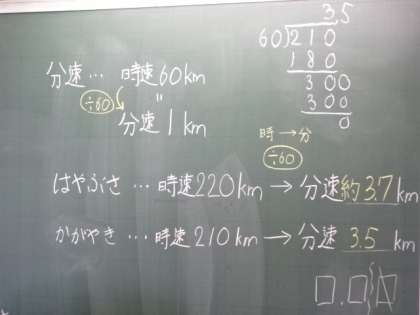 分速… 時速60km
÷60 〃
分速1km
3.5
60)210
180
300
300
0
時→分
÷60
はやぶさ … 時速220km → 分速約3.7km
かがやき … 時速210km → 分速 3.5 km